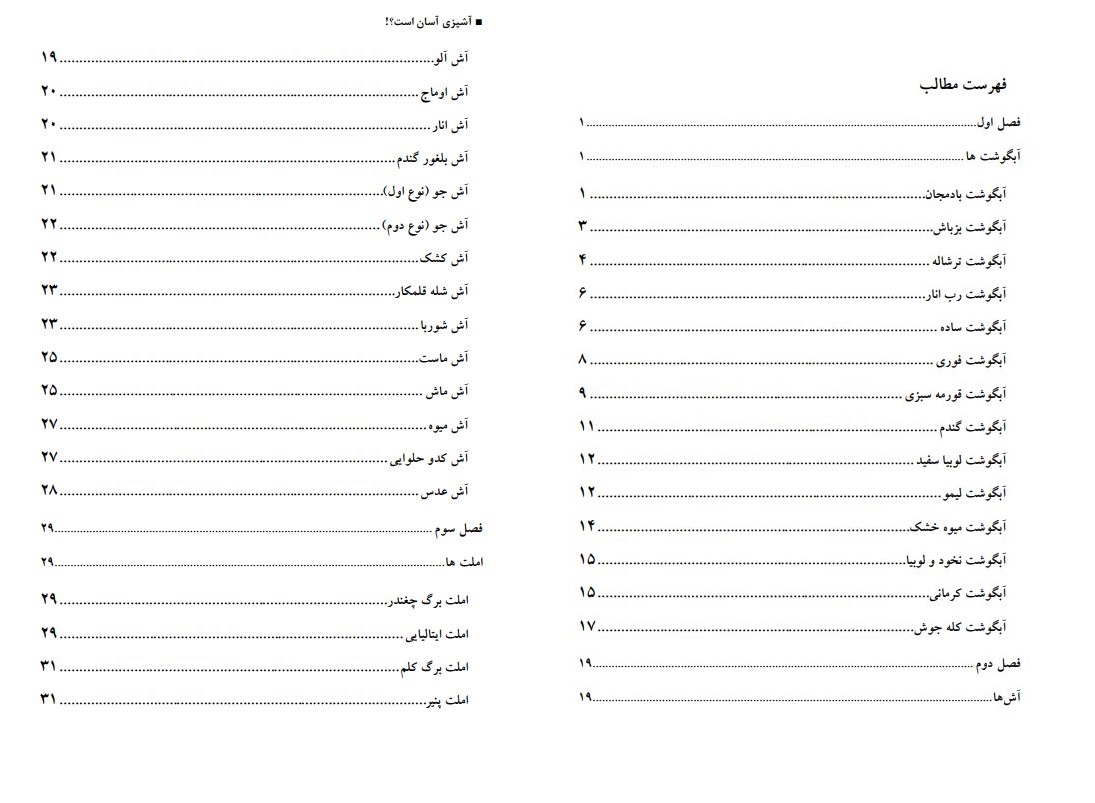 فهرست مطالب
فصل اول........................................ ۱
آبگوشت ها........................................ ۱
آبگوشت بادمجان........................................ ۱
آبگوشت بزباش........................................ ۳
آبگوشت ترشاله ........................................ ۴
آبگوشت رب انار........................................ ۶
آبگوشت ساده ........................................ ۶
آبگوشت فوری ........................................ ۸
آبگوشت قورمه سبزی ........................................ ۹
آبگوشت گندم........................................ ۱۱
آبگوشت لوبیا سفید ........................................ ۱۲
آبگوشت لیمو........................................ ۱۲
آبگوشت میوه خشک........................................ ۱۴
آبگوشت نخود و لوبیا........................................ ۱۵
آبگوشت کرمانی........................................ ۱۵
آبگوشت کله جوش........................................ ۱۷
فصل دوم ........................................ ۱۹
آش‌ها........................................ ۱۹
■ آشپزی آسان است؟!
آش آلو........................................ ۱۹
آش اوماج ........................................ ۲۰
آش انار........................................ ۲۰
آش بلغور گندم........................................ ۲۱
آش جو (نوع اول)........................................ ۲۱
آش جو (نوع دوم) ........................................ ۲۲
آش کشک........................................ ۲۲
آش شله قلمکار........................................ ۲۳
آش شوربا ........................................ ۲۳
آش ماست........................................ ۲۵
آش ماش ........................................ ۲۵
آش میوه ........................................ ۲۷
آش کدو حلوایی ........................................ ۲۷
آش عدس ........................................ ۲۸
فصل سوم ........................................ ۲۹
املت ها........................................ ۲۹
املت برگ چغندر........................................ ۲۹
املت ایتالیایی ........................................ ۲۹
املت برگ کلم........................................ ۳۱
املت پنیر........................................ ۳۱